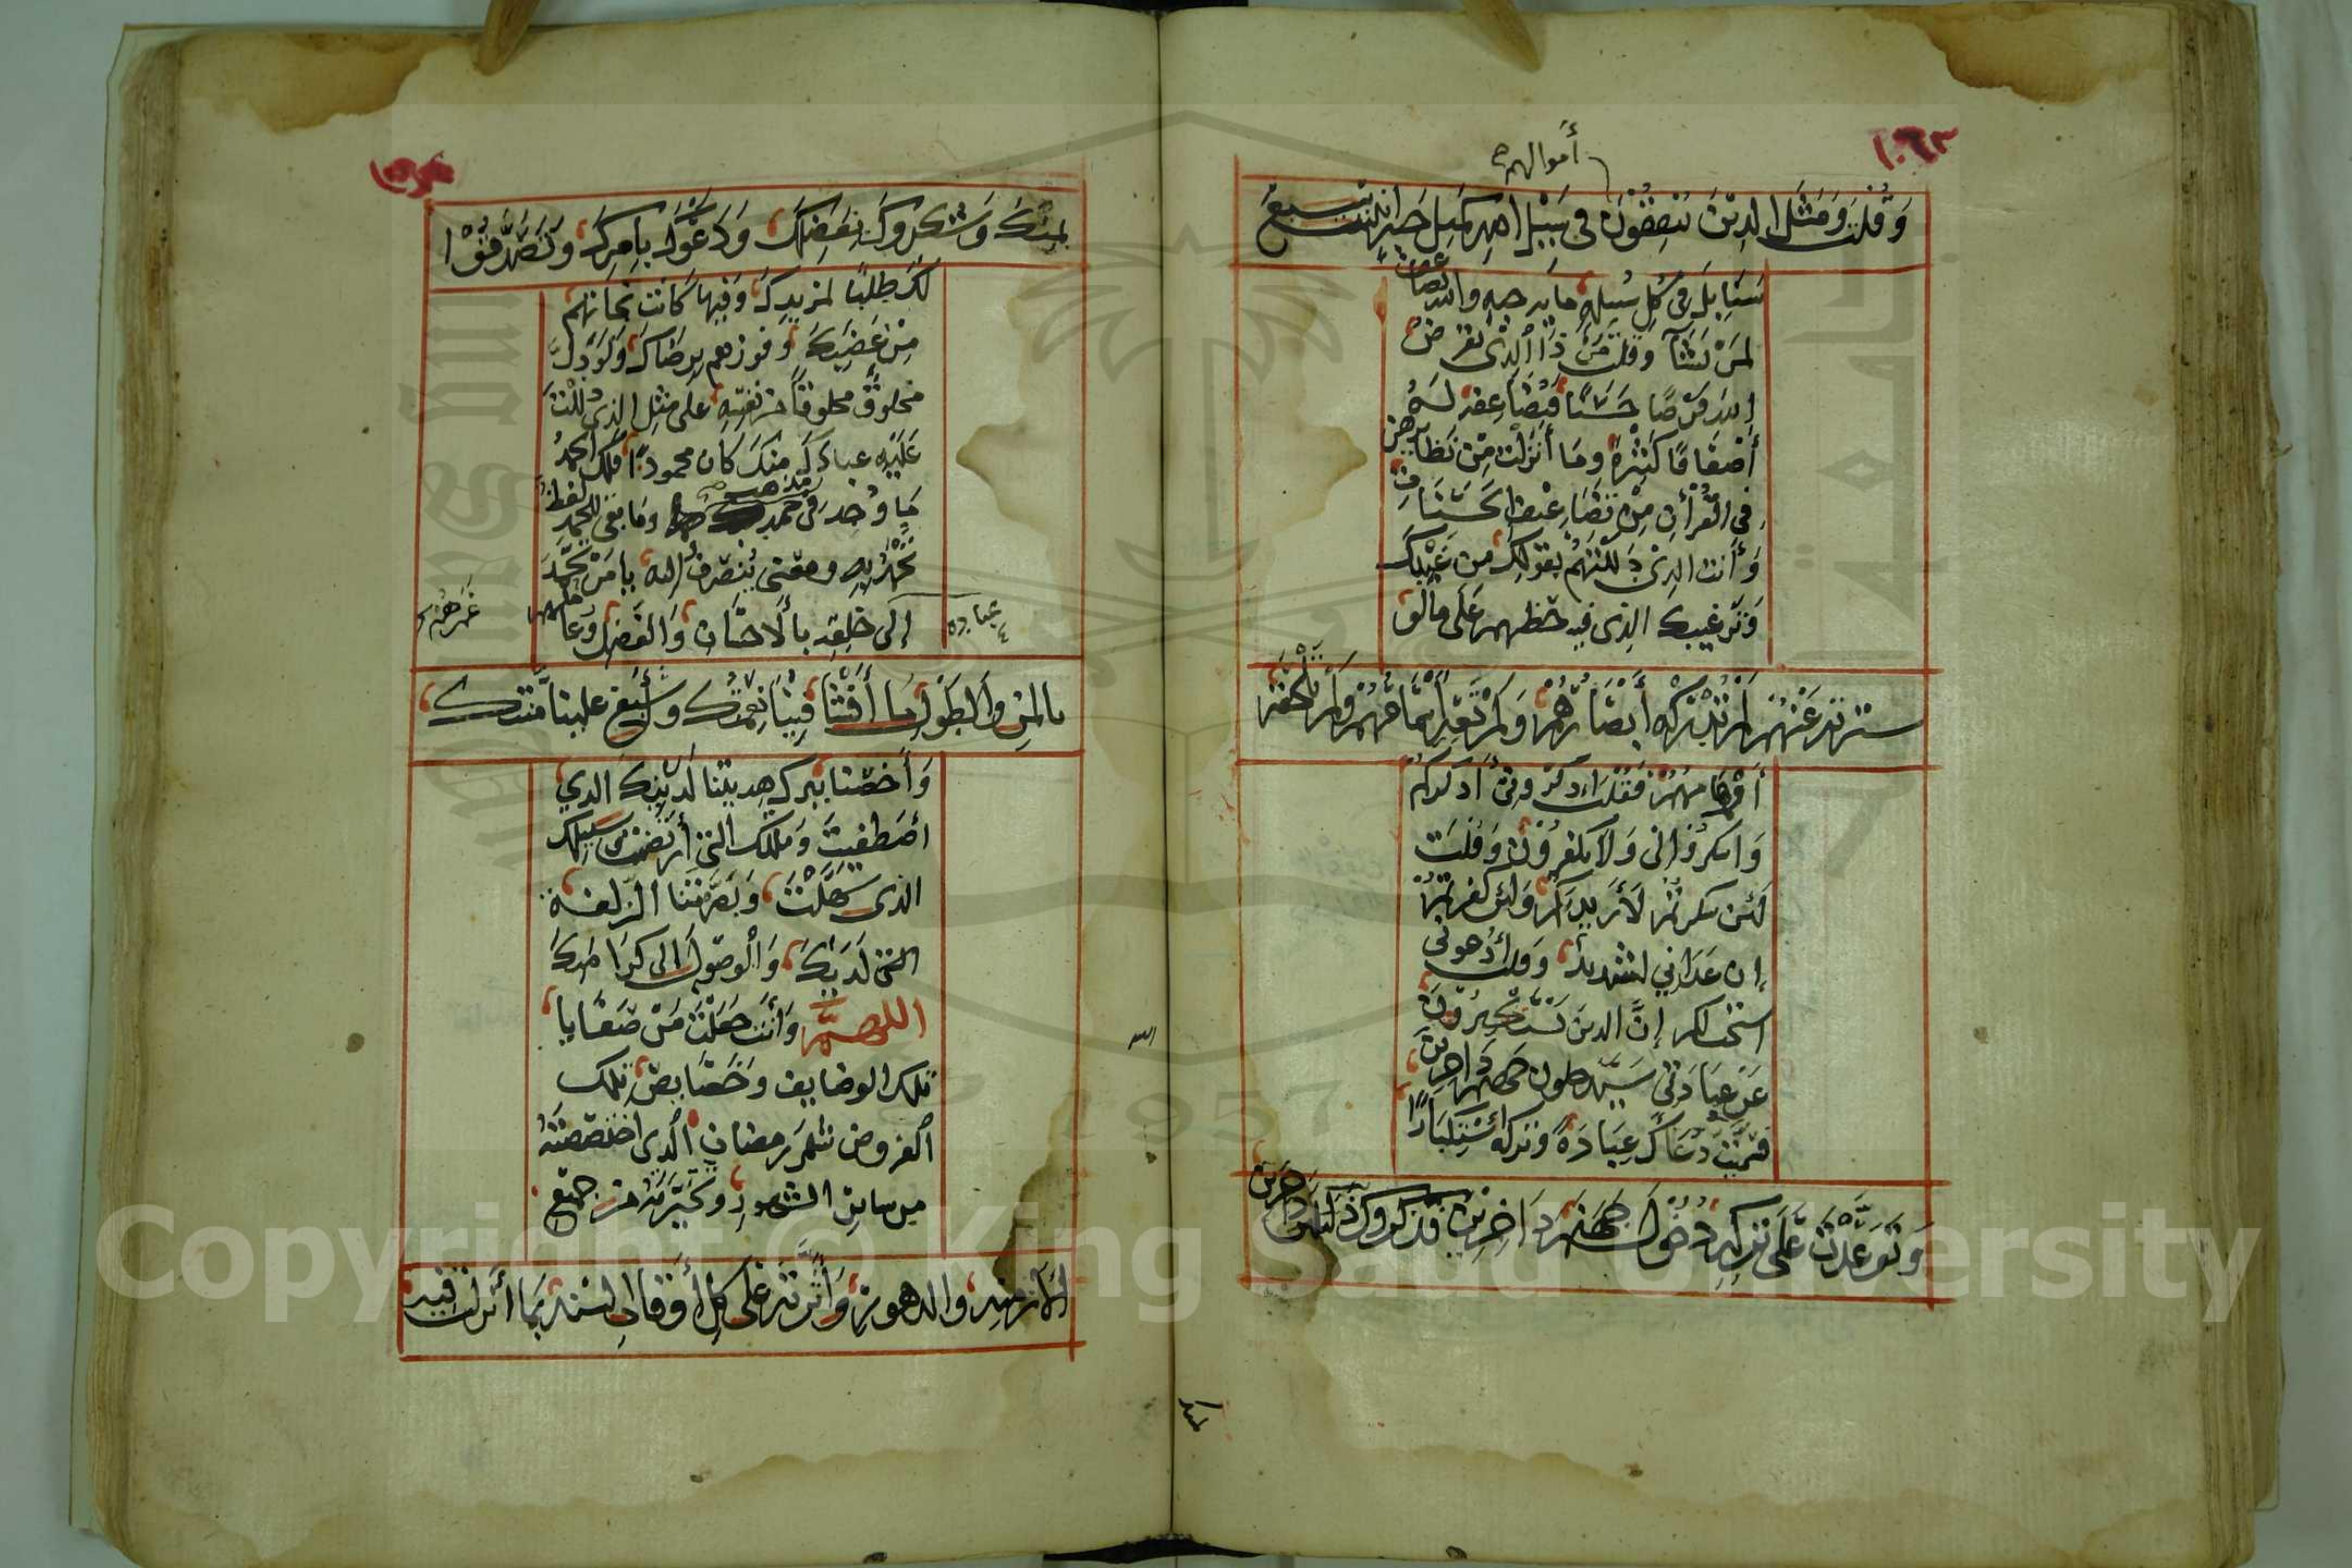 ١٠٦٣
أموالهم
وقلت ومثل الذين ينفقون في سبيل الله كمثل حبة انبتت سبع
سنابل في كل سنبلة مايه حبه والله يضاعف
لمن يشآ وقلت من ذا الذي يقرض
الله قرضا حسنا فيضاعفه له
أضعافا كثيرة وما أنزلت من نظايرهن
في القرآن من تضاعيف الحسنات
وأنت الذي دللتهم بقولك من غيبك
وترغيبك الذي فيه حظهم على مالو
سترته عنهم لم تدركه أبصارهم ولم تعه أسماعهم ولم تلحقه
أوهامهم فقلت اذكروني أذكركم
واشكروا لي ولا تكفرون وقلت
لئن شكرتم لأزيدنكم ولئن كفرتم
إن عذابي لشديد وقلت أدعوني
استجب لكم إن الذين يستكبرون
عن عبادتي سيدخلون جهنم داخرين
فسميت دعاك عبادة وتركه استكبارا
وتوعدت على تركه دخول جهنم داخرين فذكروك
بمنك وشكروك بفضلك ودعوك بامرك وتصدقوا
لك طلبا لمزيدك وفيها كانت نجاتهم
من غضبك وفوزهم برضاك ولو دل
مخلوق مخلوقا من نفسه على مثل الذي دللت
عليه عبادك منك كان محمودا فلك الحمد
ما وجد في حمدك مذهب وما بقي للحمد لفظ
تحمد به ومعنى ينصرف إليه يا من تحمد
إلى خلقه بالاحسان والفضل وعاملهم
عباده
غمرهم
بالمن والطول ما أفشا فينا نعمتك وأسبغ علينا منتك
وأخصنا ببرك هديتنا لدينك الذي
اصطفيت وملتك التي أرتضيت وسبيلك
الذي سهلت وبصرتنا الزلفة
التي لديك والوصول الى كرامتك
اللهم وأنت جعلت من صفايا
تلك الوضايف وخصايص تلك
الفروض شهر رمضان الذي اختصصته
من سائر الشهور وتخيرته من جميع
الأزمنة والدهور وأثرته على كل أوقات السنة بما أنزلت فيه